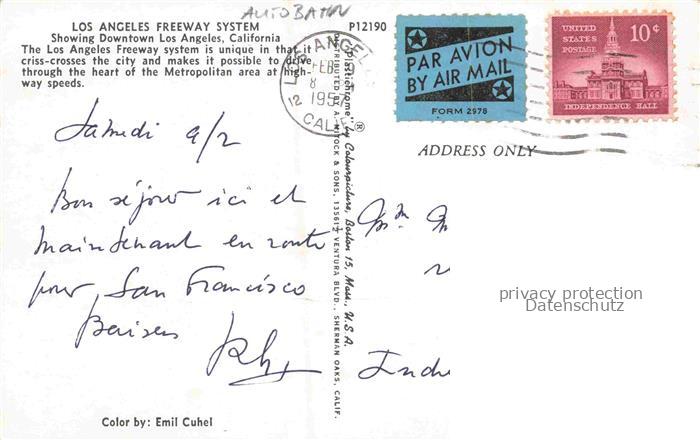 AUTOBAHN
LOS ANGELES FREEWAY SYSTEM
Showing Downtown Los Angeles, California
The Los Angeles Freeway system is unique in that it
criss-crosses the city and makes it possible to drive
through the heart of the Metropolitan area at high-
way speeds.
P12190
LOS ANGELES
FEB
8
12
CALIF.
PAR AVION
BY AIR MAIL
FORM 2978
UNITED
STATES
POSTAGE
10¢
INDEPENDENCE HALL
ADDRESS ONLY
Samedi 9/2
Bon séjour ici et
maintenant en route
pour San Francisco
Baisers
"Plastichrome" ® by Colourpicture, Boston 15, Mass., U.S.A.
DISTRIBUTED BY A. MITOCK & SONS, 13561½ VENTURA BLVD., SHERMAN OAKS, CALIF.
privacy protection
Datenschutz
Color by: Emil Cuhel